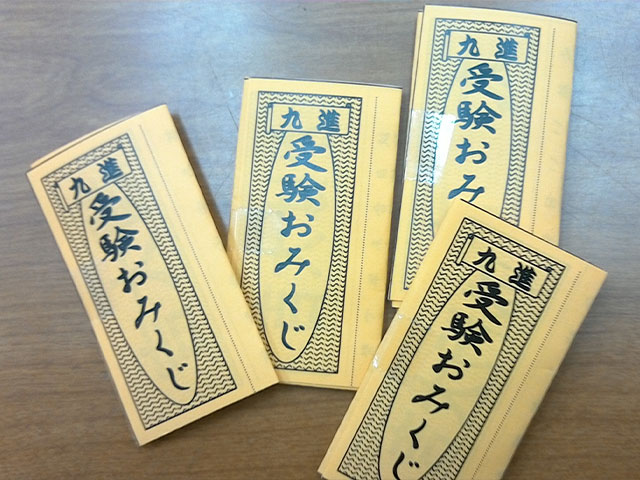 九進
受験おみくじ
九進
受験おみくじ
九進
受験おみ
九進
受験おみくじ